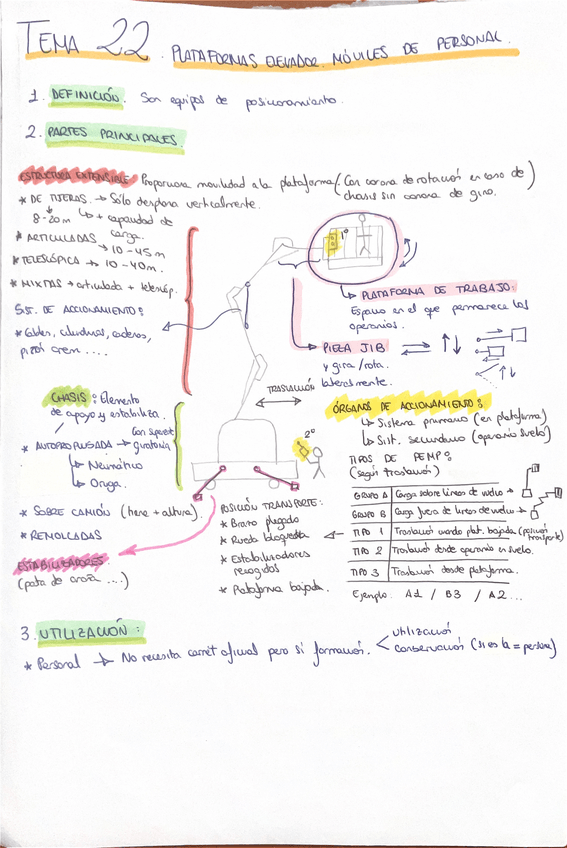 TEMA 22. PLATAFORMAS ELEVADOR. MÓVILES DE PERSONAL.
1. DEFINICIÓN. Son equipos de posicionamiento.
2. PARTES PRINCIPALES.
ESTRUCTURA EXTENSIBLE: Proporciona movilidad a la plataforma (Con corona de rotación en caso de chasis sin corona de giro.)
* DE TIJERAS. → Sólo desplaza verticalmente.
8-20 m ↳ + capacidad de carga.
* ARTICULADAS → 10-45 m
* TELESCÓPICA → 10-40 m.
* MIXTAS → articulada + telescóp.
SIST. DE ACCIONAMIENTO:
* Cables, cilindros, cadenas, piñón crem ....
1º
↳ PLATAFORMA DE TRABAJO:
Espacio en el que permanece los operarios.
→ PIEZA JIB
y gira / rota. lateralmente.
TRASLACIÓN
CHASIS: Elemento de apoyo y estabiliza.
* AUTOPROPULSADA → giratoria
↳ Neumático
↳ Oruga.
* SOBRE CAMIÓN (tiene + altura).
* REMOLCADAS
ESTABILIZADORES.
(pata de araña ...)
2º
POSICIÓN TRANSPORTE:
* Brazo plegado
* Rueda bloqueada
* Estabilizadores recogidos
* Plataforma bajada.
ÓRGANOS DE ACCIONAMIENTO:
↳ Sistema primario (en plataforma)
↳ Sist. secundario (operario suelo)
TIPOS DE PEMP:
(según traslación)
GRUPO A | Carga sobre líneas de vuelco →
GRUPO B | Carga fuera de líneas de vuelco →
TIPO 1 | Traslación cuando plat. bajada (posición transporte)
TIPO 2 | Traslación desde operario en suelo.
TIPO 3 | Traslación desde plataforma.
Ejemplo. A1 / B3 / A2...
3. UTILIZACIÓN:
* Personal → No necesita carnét oficial pero si formación. < utilización
conservación (si es la = persona)